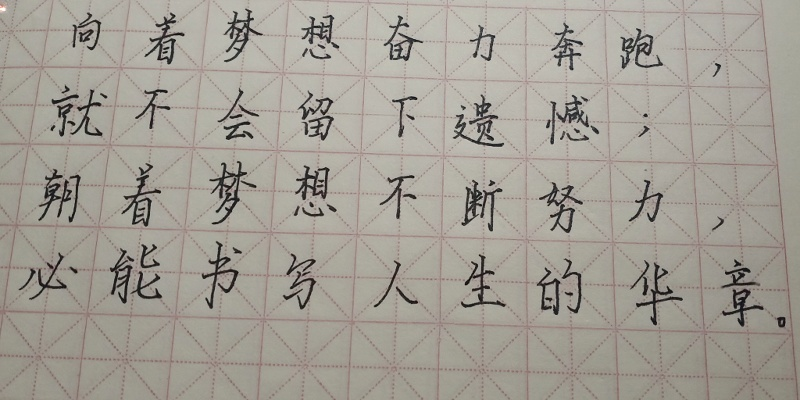 向着梦想奋力奔跑，
就不会留下遗憾；
朝着梦想不断努力，
必能书写人生的华章。